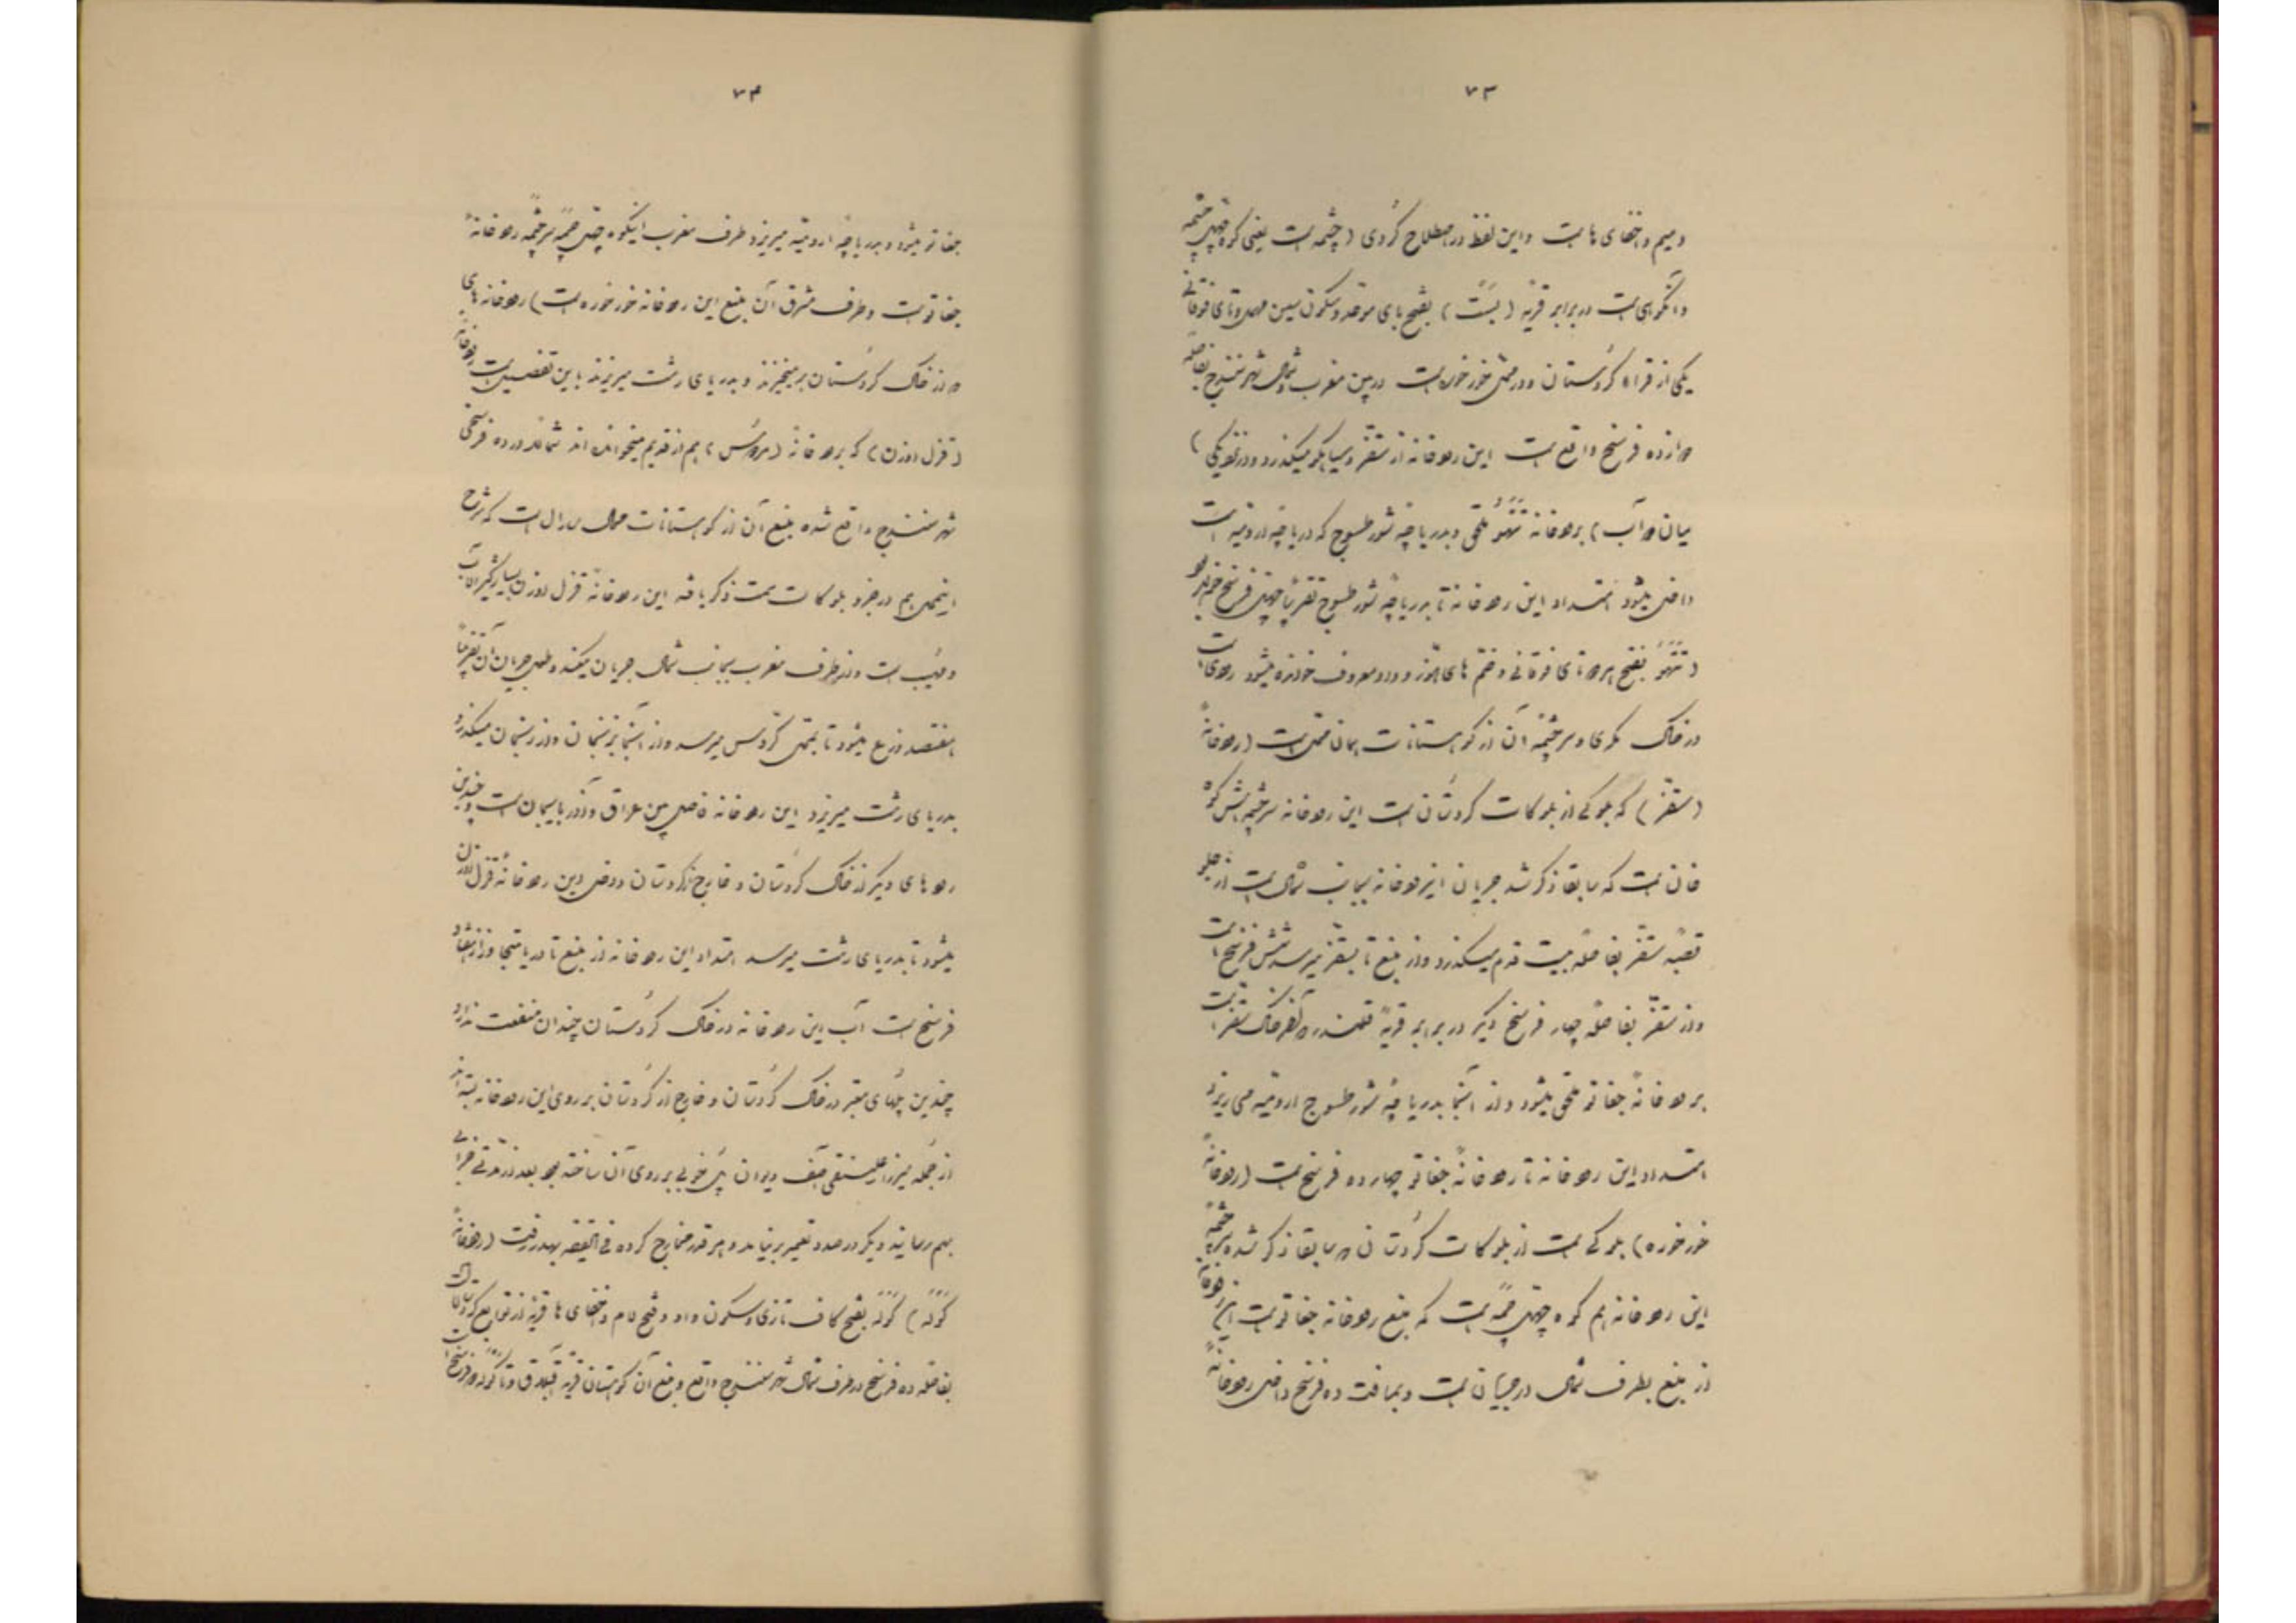 ۷۳
و میم و اخفای ها است و این لفظ در اصطلاح کُردی (چشمه است یعنی کوه چهل چشمه
و آنکوهی است در برابر قریهٔ (بَسَّت) بفتح بای موحده و سکون سین مهمله و تای فوقانی
یکی از قراء کُردستان و در محل خورخوره است در بین مغرب و شمال شهر سنندج بفاصلهٔ
دوازده فرسخ واقع است این رودخانه از سقز و سیاهکوه میگذرد و در نزدیکی)
میان دوآب) برودخانه تَتَهُو ملحق و بدریاچه شور طسوج که دریاچه ارومیه است
داخل میشود امتداد این رودخانه تا بدریاچه شور طسوج تقریباً چهل فرسخ خواهد بود
(تَتَهُو بفتح هر دو تای فوقانی و ضم های هوّز و واو معروف خوانده میشود رودی است
در خاک مکری و سرچشمه آن از کوهستانات همان محل است (رودخانهٔ
(سقّز) که بلوکی از بلوکات کردستان است این رودخانه سرچشمه‌اش کوه
خان است که سابقا ذکر شد جریان اینرودخانه بجانب شمال است از جلو
قصبهٔ سقّز بفاصلهٔ بیست قدم میگذرد و از منبع تا بسقّز میرسد شش فرسخ است
و از سقّز بفاصلهٔ چهار فرسخ دیگر در برابر قریهٔ قلندر که آخر خاک سقّز است
برودخانهٔ جغاتو ملحق میشود و از آنجا بدریاچهٔ شور طسوج ارومیه می‌ریزد
امتداد این رودخانه تا رودخانهٔ جغاتو چهارده فرسخ است (رودخانهٔ
خورخوره) بلوکی است از بلوکات کُردستان که سابقا ذکر شده سرچشمهٔ
این رودخانه هم کوه چهل چَمَه است که منبع رودخانه جغاتو است این رودخانه
از منبع بطرف شمال در جریان است و بمسافت ده فرسخ داخل رودخانهٔ
۷۴
جغاتو میشود و بدریاچهٔ ارومیه میریزد طرف مغرب اینکوه چهل چَمَه سرچشمه رودخانهٔ
جغاتو است و طرف مشرق آن منبع این رودخانه خورخوره است) رودخانه‌های
که از خاک کُردستان برمیخیزند و بدریای رشت میریزند باین تفصیل است رودخانهٔ
(قزل اوزن) که برودخانهٔ ( ) هم از قدیم میخوانده‌اند شمالا در ده فرسخی
شهر سنندج واقع شده منبع آن از کوهستانات محال سارال است که شرح
اینمحل هم در جزو بلوکات سمت ذکر یافته این رودخانهٔ قزل اوزن بسیار کثیرالآب
و مهیب است و از طرف مغرب بجانب شمال جریان میکند و طول جریان آن تقریباً
هفتصد ذرع میشود تا بمحل گرّوس میرسد و از آنجا بزنجان و از زنجان میگذرد
بدریای رشت میریزد این رودخانه فاصل بین عراق و آذربایجان است و چندین
رودهای دیگر از خاک کُردستان و خارج از کردستان داخل این رودخانهٔ قزل اوزن
میشود تا بدریای رشت میرسد امتداد این رودخانه از منبع تا دریا متجاوز از هشتاد
فرسخ است آب این رودخانه در خاک کُردستان چندان منفعت ندارد
چندین پلهای معتبر در خاک کُردستان و خارج از کُردستان بر روی این رودخانه بسته‌اند
از جمله میرزا علینقی آصف دیوان پل خوبی بر روی آن ساخته بود بعد از مدّتی خرابی
بهم رسانید دیگر در صدد تعمیر برنیامد و هر قدر مخارج کرده فی الحقیقه بهدر رفت (رودخانهٔ
کَوَلَه) کَوَلَه بفتح کاف تازی و سکون واو و فتح لام و اخفای ها قریهٔ از توابع کردستان است
بفاصله ده فرسخ در طرف شمال شهر سنندج واقع و منبع آن کوهستان قریهٔ و تا کَوَلَه دو فرسخ است